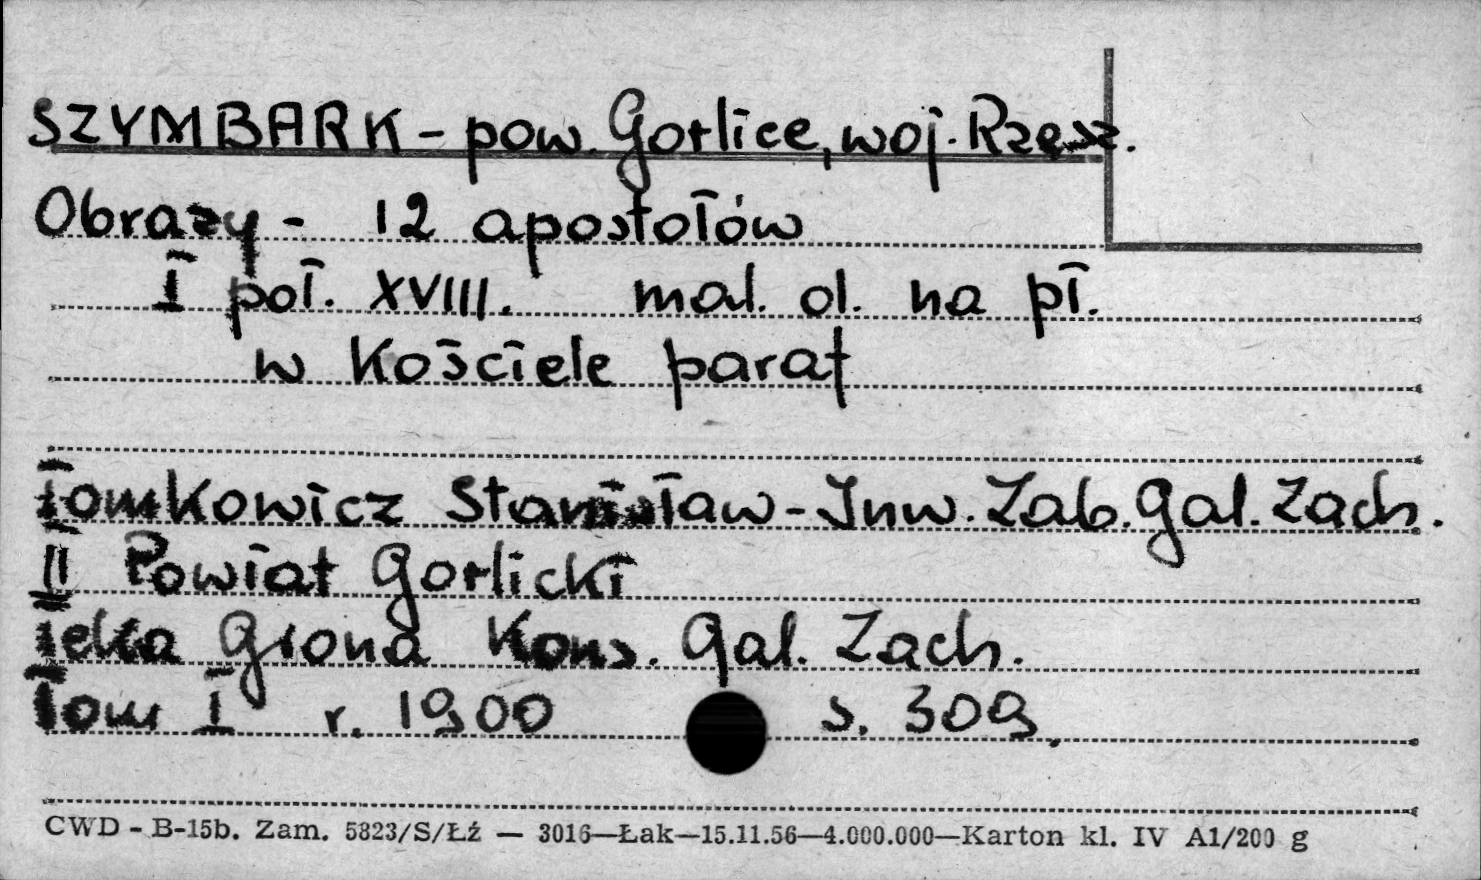 SZYMBARK - pow. Gorlice, woj. Rzesz.
Obrazy - 12 apostołów
I poł. XVIII. mal. ol. na pł.
w Kościele paraf
Tomkowicz Stanisław - Inw. Zab. Gal. Zach.
II Powiat Gorlicki
Teka Grona Kons. Gal. Zach.
Tom I r. 1900 s. 309.
CWD - B-15b. Zam. 5823/S/Łź — 3016—Łak—15.11.56—4.000.000—Karton kl. IV A1/200 g